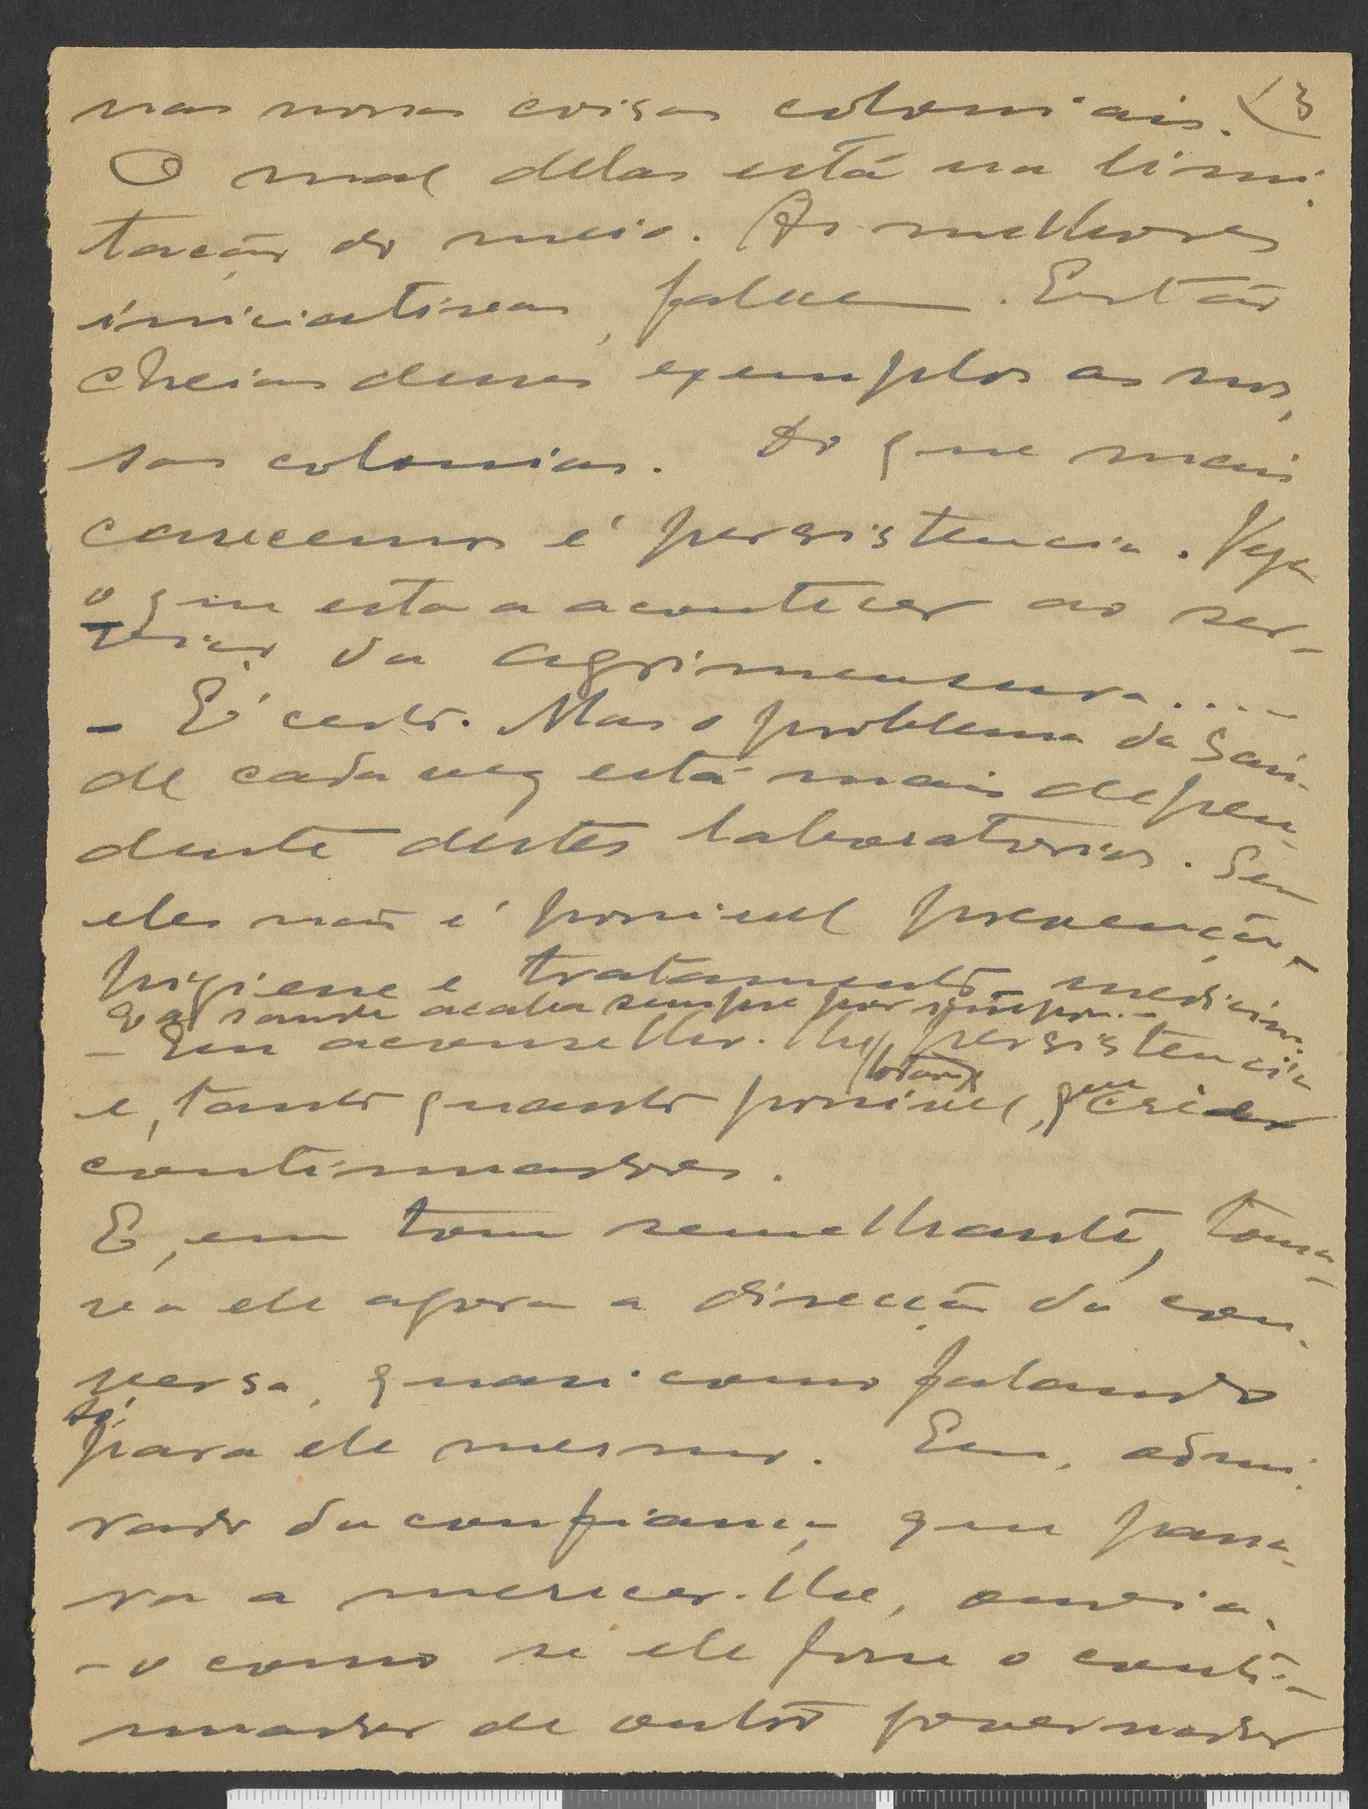 13
nas nossas coisas coloniais.
O mal delas está na limi-
tação do meio. As melhores
iniciativas, falham. Estão
cheias desses exemplos as nos-
sas colonias. Do que mais
carecemos é persistencia. Veja
o que esta a acontecer ao ser-
viço da agrimensura....
- É certo. Mas o problema da Sau-
de cada vez está mais depen-
dente destes laboratorios. Sem
eles não é possivel prevenção,
higiene e tratamento medicina.
E a saude acaba sempre por
- Eu aconselho-lhe persistencia
e, tanto quanto possivel, que
continuadores.
E, em tom semelhante, toma-
va ele agora a direcção da con-
versa, quasi como falando
só para ele mesmo. Eu, admi-
rado da confiança que passa-
va a merecer-lhe, ouvia-
-o como se ele fosse o conti-
nuador de outro governador